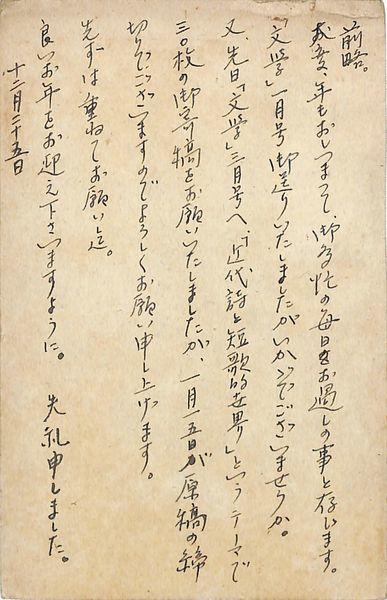 前略。
歳末、年もおしつまつて、御多忙の毎日をお過しの事と存じます。
「文學」一月号御送りいたしましたがいかがでございませうか。
又、先日「文學」三月号へ、「近代詩と短歌的世界」といふテーマで
三〇枚の御寄稿をお願いいたしましたが、一月一五日が原稿の締
切りでございますのでよろしくお願い申し上げます。
先ずは重ねてお願い迄。
良いお年をお迎え下さいますように。 失礼申しました。
十二月二十五日